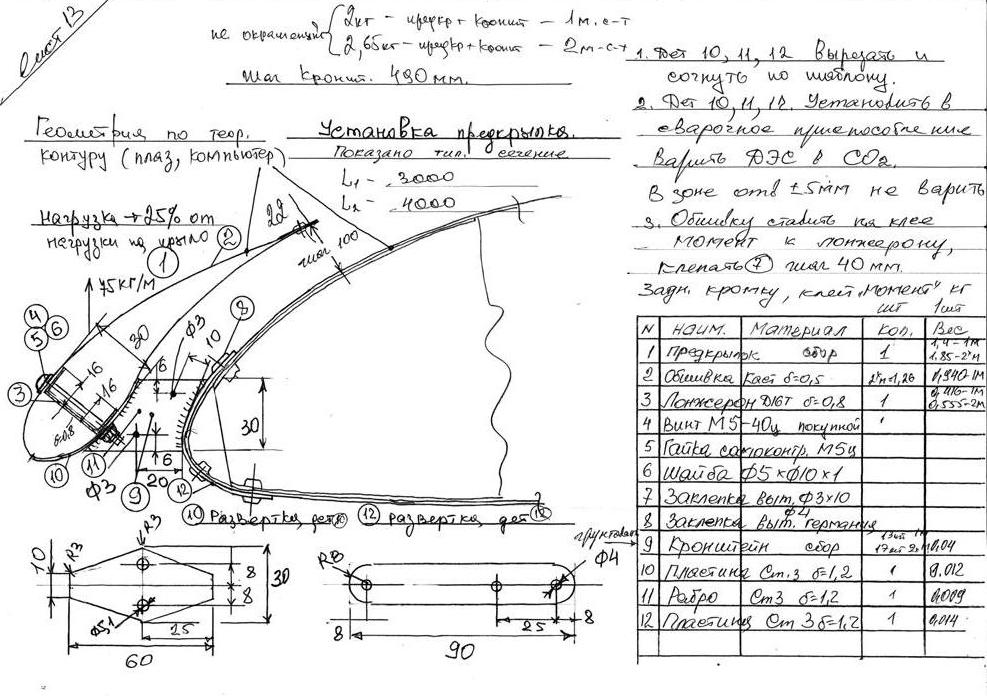 Лист 13
не окрашенный
2кг - предкр + кроншт - 1м.с-т
2,65кг - предкр + кроншт - 2м-с-т
Шаг кроншт. 490 мм.
Геометрия по теор.
контуру (плаз, компьютер)
Установка предкрылка.
Показано тип. сечение
L1 - 3000
L2 - 4000
Нагрузка → 25% от
нагрузки на крыло
75 кг/м
1
2
22
шаг 100
4
5
6
30
Ф3
8
10
6
16
16
3
δ=0,8
30
10
11
Ф3
9
20
6
12
1. Дет 10, 11, 12 Вырезать и
согнуть по шаблону.
2. Дет 10, 11, 12. Установить в
сварочное приспособление
Варить ДЭС в СО2.
В зоне отв ±5мм не варить
3. Обшивку ставить на клее
момент к лонжерону,
клепать 7 шаг 40 мм.
Задн. кромку, клей „момент" кг
шт 1шт
N наим. Материал Кол. Вес
1 Предкрылок сбор 1 1,4-1м 1.85-2м
2 Обшивка Д16Т δ=0,5 0,940-1м
3 Лонжерон Д16Т δ=0,8 1 0,416-1м 0,555-2м
4 Винт М5-40ц покупной
5 Гайка самоконтр. М5ц
6 Шайба Ф5×Ф10×1
7 Заклепка выт. Ф3×10
8 Заклепка выт. Ф4 германия
9 Кронштейн сбор 13шт 1м 17шт 2м 0.04
10 Пластина Ст.3 δ=1,2 1 0.012
11 Ребро Ст3 δ=1,2 1 0,009
12 Пластина Ст 3 δ=1,2 1 0,014
10 Развертка дет 10
12 развертка дет 12
грунтовать
Ф4
R3
R3
10
8
8
30
Ф5,1
25
60
R8
8
25
8
90